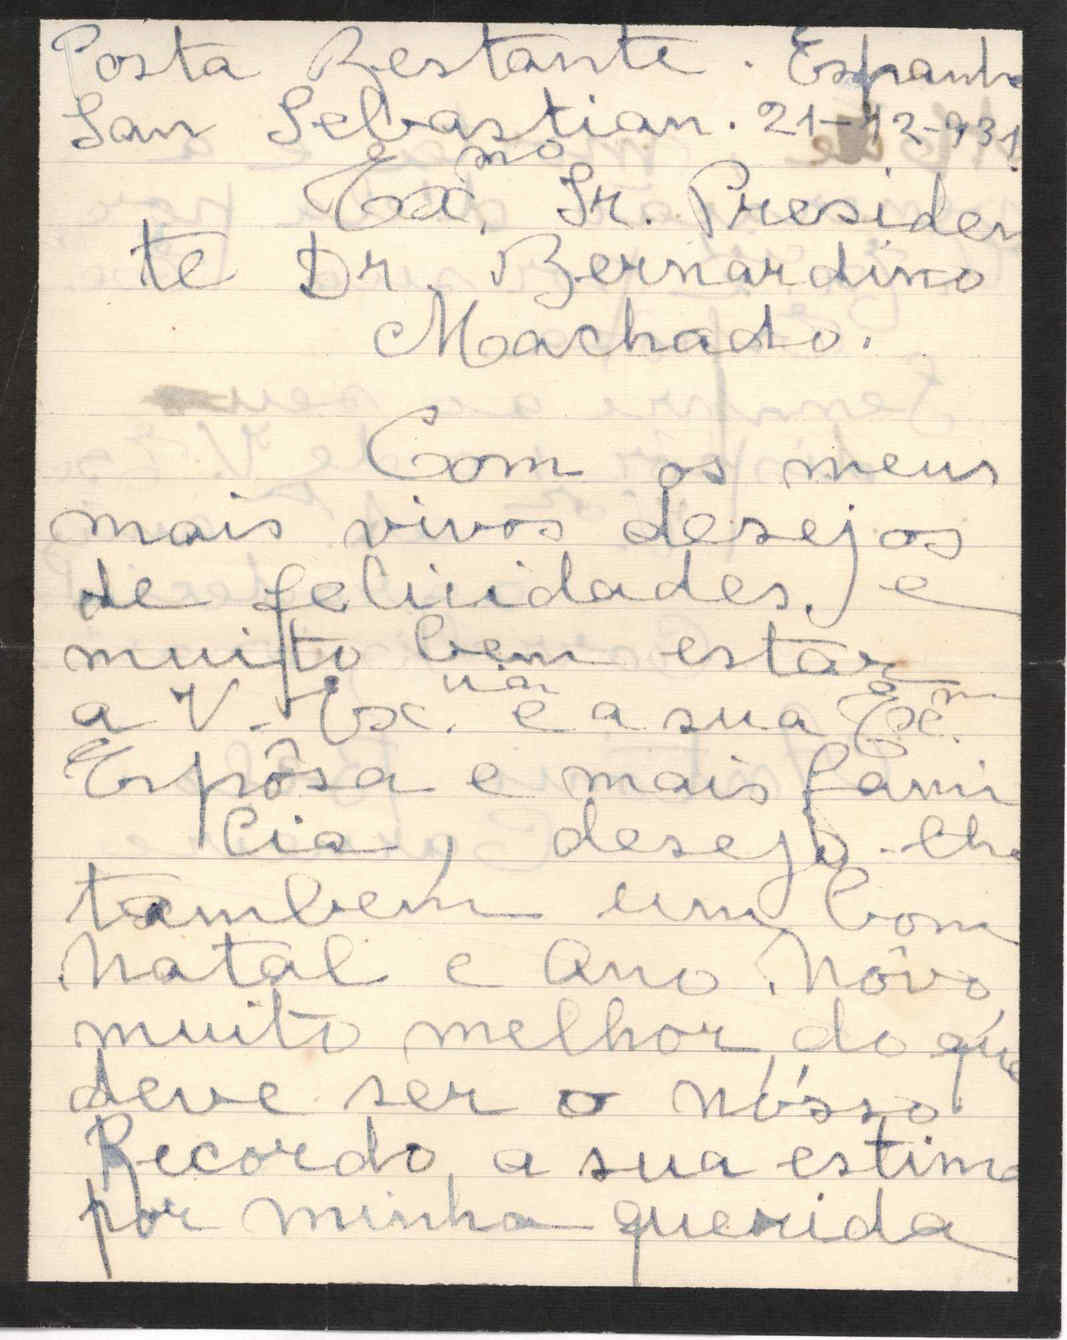 Posta Restante. Espanha
San Sebastian. 21-12-931.
Exmo Sr. Presiden
te Dr. Bernardino
Machado.
Com os meus
mais vivos desejos
de felicidades, e
muito bem estar
a V. Ex. e a sua Exma
Espôsa e mais fami
lia, desejo-lhe
tambem um bom
Natal e Ano Nôvo,
muito melhor do que
deve ser o nósso.
Recordo a sua estima
por minha querida